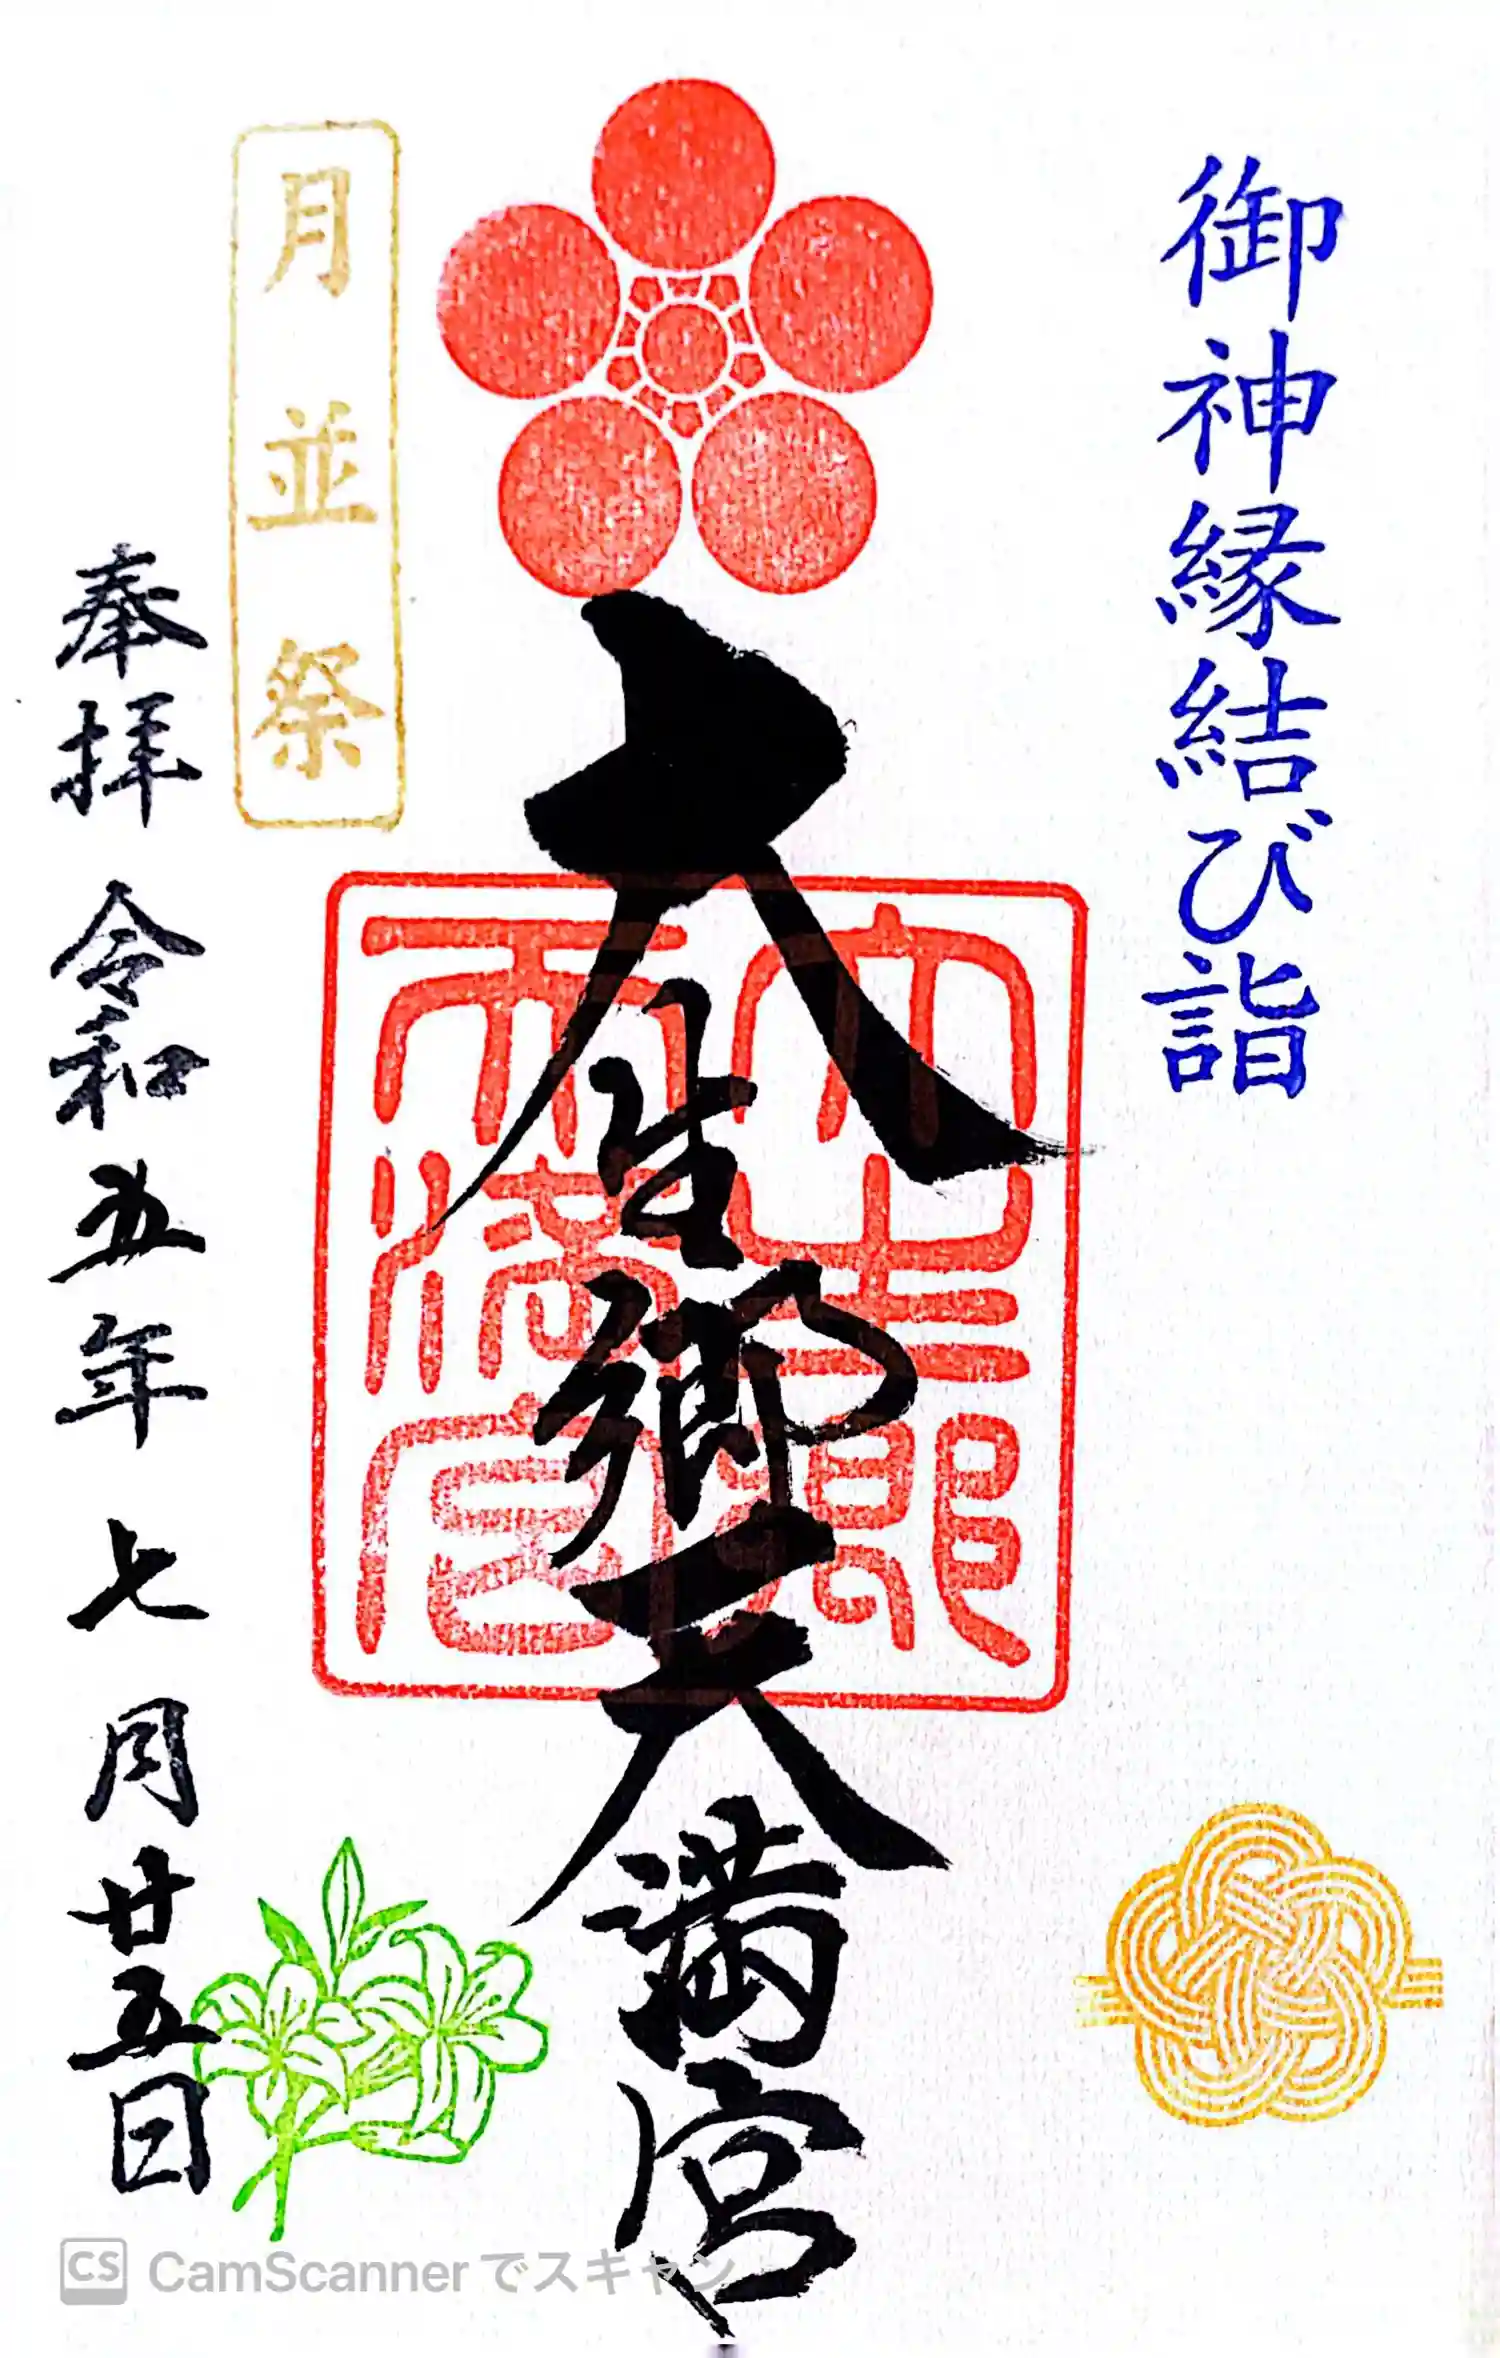 御神縁結び詣
大生郷天満宮
大生郷
天満宮
月並祭
奉拝 令和五年七月廿五日
CS CamScannerでスキャン